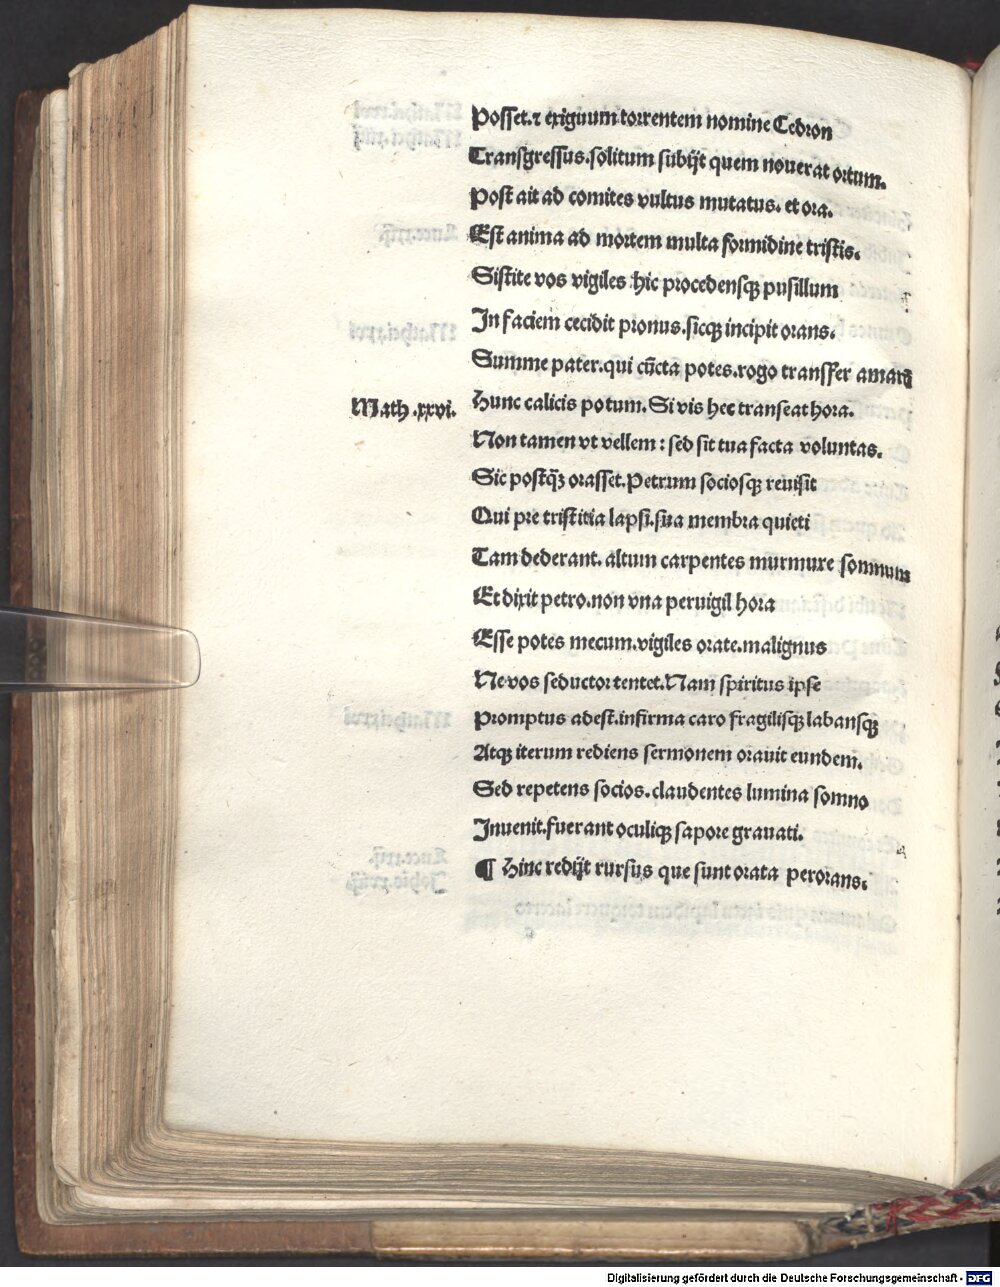 Posset.⁊ exiguum torrentem nomine Cedron
Transgressus.solitum subijt quem nouerat ortum.
Post ait ad comites vultus mutatus. et ora.
Est anima ad mortem multa formidine tristis.
Sistite vos vigiles hic procedensqꝫ pusillum
In faciem cecidit pronus.sicqꝫ incipit orans.
Summe pater.qui cūcta potes.rogo transfer amarū
Math .xxvi.
Hunc calicis potum. Si vis hec transeat hora.
Non tamen vt vellem : sed sit tua facta voluntas.
Sic postq̄ꝫ orasset.Petrum sociosqꝫ reuisit
Qui pre tristitia lapsi.sua membra quieti
Tam dederant. altum carpentes murmure somnum
Et dixit petro.non vna peruigil hora
Esse potes mecum.vigiles orate.malignus
Ne vos seductor tentet.Nam spiritus ipse
Promptus adest.infirma caro fragilisqꝫ labansqꝫ
Atqꝫ iterum rediens sermonem orauit eundem.
Sed repetens socios.claudentes lumina somno
Inuenit.fuerant oculiqꝫ sapore grauati.
¶ Hinc redijt rursus que sunt orata perorans.
Digitalisierung gefördert durch die Deutsche Forschungsgemeinschaft - DFG